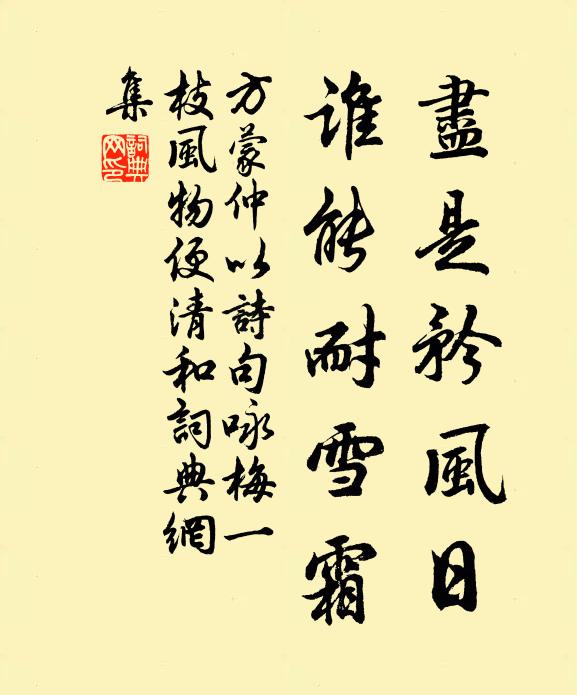 盡是矜風日
誰能耐雪霜
方蒙仲以詩句咏梅一
枝風物便清和詞典網
集
詞典網印